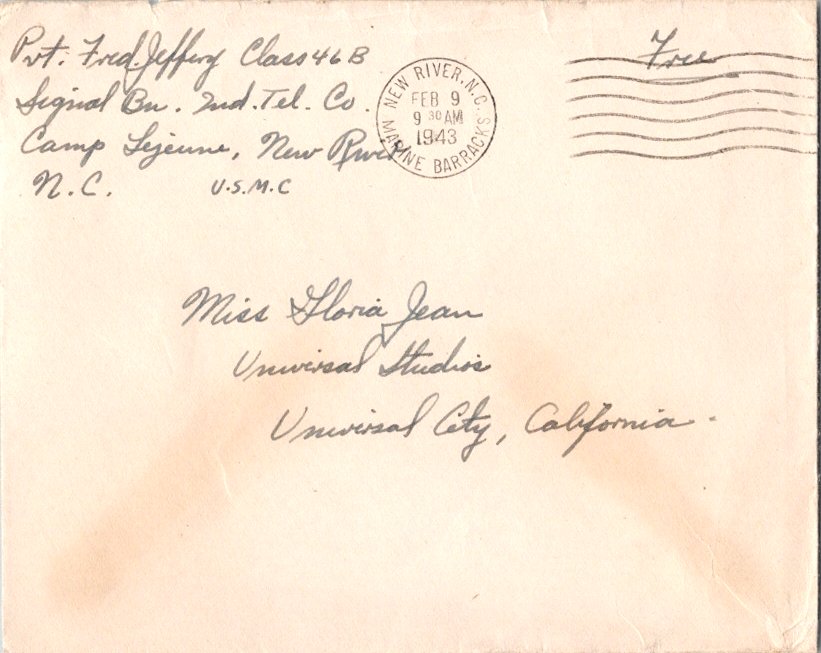 Pvt. Fred Jeffery Class 46B
Signal Bn. 2nd. Tel. Co.
Camp Lejeune, New River
N.C. U.S.M.C
NEW RIVER, N.C.
FEB 9
9 30 AM
1943
MARINE BARRACKS
Free
Miss Gloria Jean
Universal Studios
Universal City, California.